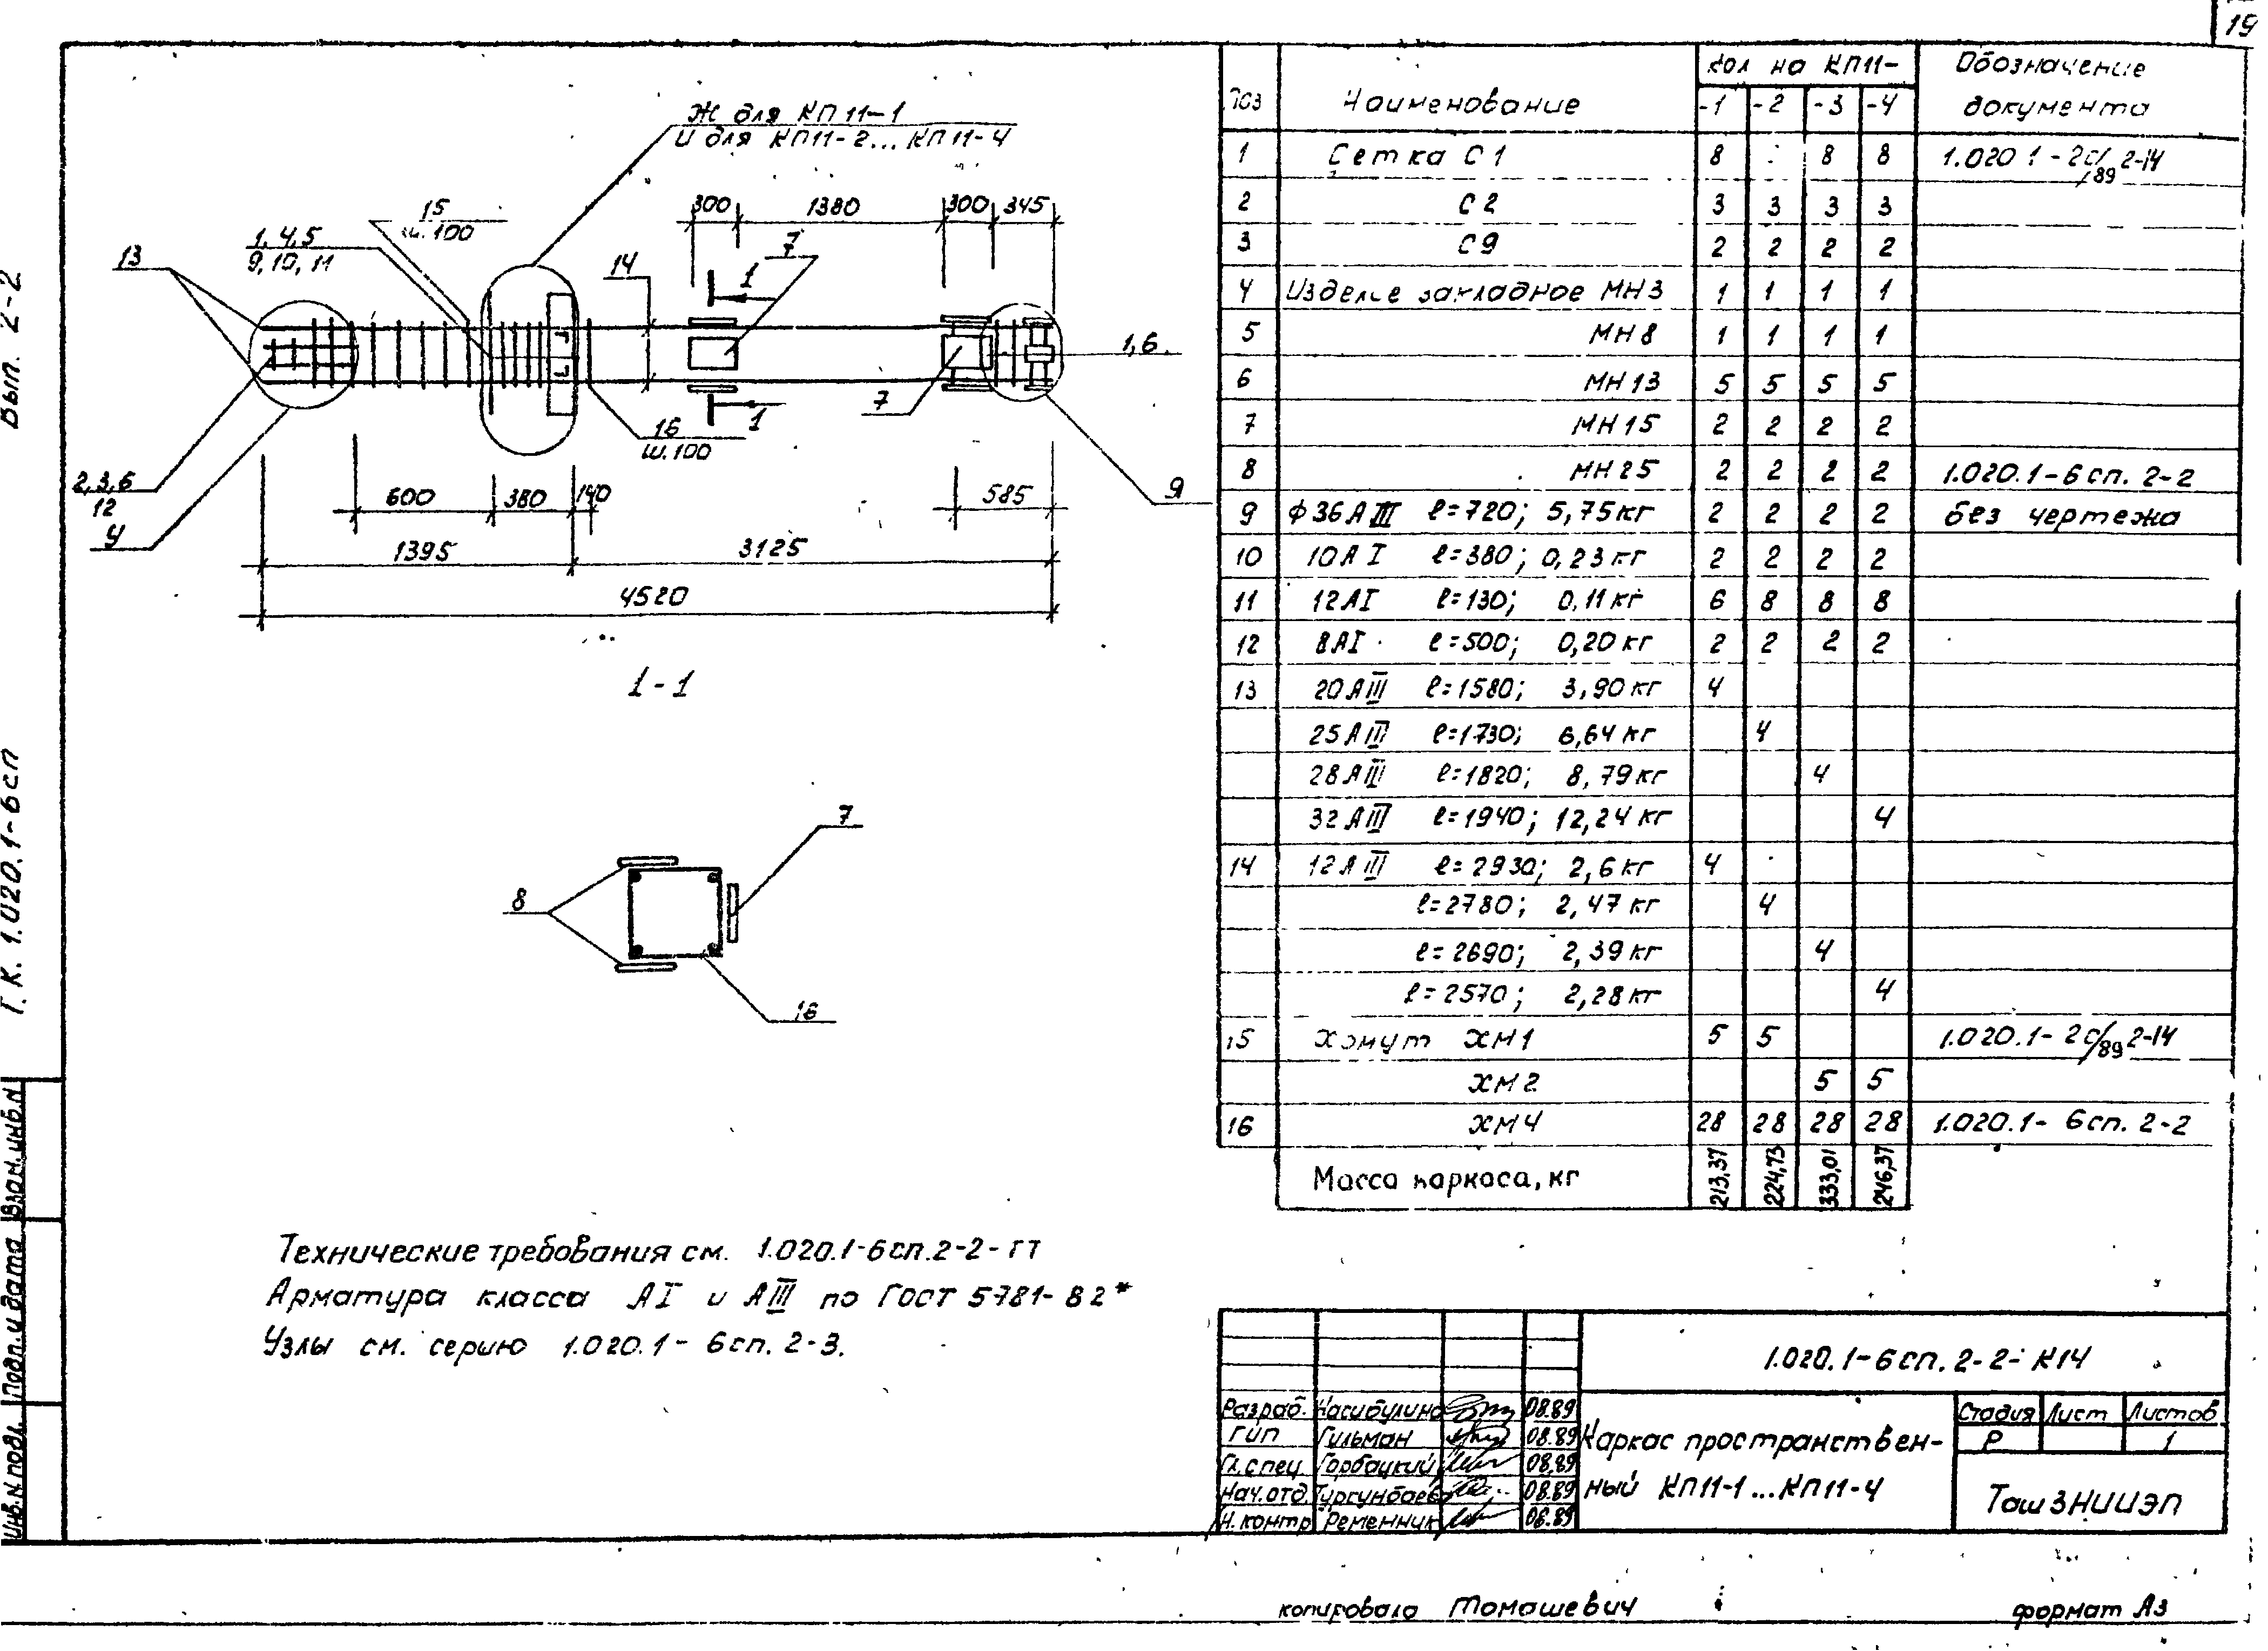 19
Ж для КП11-1
И для КП11-2...КП11-4
300 1380 300 345
15
ш.100
1,4,5
9,10,11
13
14
7
1
1,6
7
1
16
ш.100
2,3,6
12
600 380 140 585
9
1395 3125
4520
1-1
7
8
16
Технические требования см. 1.020.1-6сп.2-2-ТТ
Арматура класса АI и АIII по ГОСТ 5781-82*
Узлы см. серию 1.020.1-6сп. 2-3.
Поз Наименование Кол на КП11- Обозначение документа
-1 -2 -3 -4
1 Сетка С1 8 8 8 1.020.1-2с/89 2-14
2 С2 3 3 3 3
3 С9 2 2 2 2
4 Изделие закладное МН3 1 1 1 1
5 МН8 1 1 1 1
6 МН13 5 5 5 5
7 МН15 2 2 2 2
8 МН25 2 2 2 2 1.020.1-6сп. 2-2
9 ϕ36АIII ℓ=720; 5,75кг 2 2 2 2 без чертежа
10 10АI ℓ=380; 0,23кг 2 2 2 2
11 12АI ℓ=130; 0,11кг 6 8 8 8
12 8АI ℓ=500; 0,20кг 2 2 2 2
13 20АIII ℓ=1580; 3,90кг 4
25АIII ℓ=1730; 6,64кг 4
28АIII ℓ=1820; 8,79кг 4
32АIII ℓ=1940; 12,24кг 4
14 12АIII ℓ=2930; 2,6кг 4
ℓ=2780; 2,47кг 4
ℓ=2690; 2,39кг 4
ℓ=2570; 2,28кг 4
15 Хомут ХМ1 5 5 1.020.1-2с/89 2-14
ХМ2 5 5
16 ХМ4 28 28 28 28 1.020.1-6сп. 2-2
Масса каркаса, кг 213,37 224,73 333,01 246,37
1.020.1-6сп.2-2-К14
Разраб. Насибулина 08.89
ГИП Гильман 08.89
Гл.спец Горбацкий 08.89
Нач.отд. Тургунбаева 08.89
Н.контр Ременник 08.89
Каркас пространствен-
ный КП11-1...КП11-4
Стадия Лист Листов
Р 1
ТашЗНИИЭП
копировала Томашевич формат А3
Вып. 2-2
Т.К. 1.020.1-6сп
Взам.инв.N
Подп.и дата
Инв.N подл.